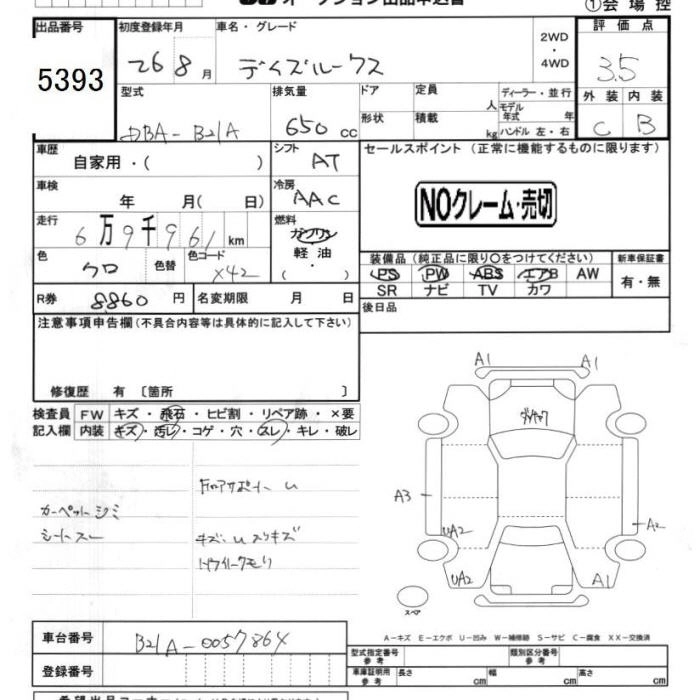 ①会場控
出品番号 初度登録年月 車名・グレード 2WD・4WD 評価点
5393 26 8月 デイズルークス 3.5
型式 排気量 ドア 定員 人 ディーラー・並行 外装 内装
DBA-B21A 650cc 形状 積載 kg モデル年式 年 C B
ハンドル 左・右
車歴 自家用・( ) シフト AT セールスポイント(正常に機能するものに限ります)
車検 年 月(日) 冷房 AAC
NOクレーム・売切
走行 6万9千961km 燃料 ガソリン
軽油・( )
色 クロ 色替 色コード X42
装備品(純正品に限り○をつけてください) 新車保証書
PS PW ABS エアB AW 有・無
SR ナビ TV カワ
R券 8,860円 名変期限 月 日 後日品
注意事項申告欄(不具合内容等は具体的に記入して下さい)
修復歴 有 〔箇所 〕
検査員 FW キズ・飛石・ヒビ割・リペア跡・×要
記入欄 内装 キズ・汚レ・コゲ・穴・スレ・キレ・破レ
カーペットシミ
シートスレ
A1 A1
A3
UA2 A2
UA2 A1
スペア
A-キズ E-エクボ U-凹み W-補修跡 S-サビ C-腐食 XX-交換済
車台番号 B21A-0057864
型式指定番号 参考 類別区分番号 参考
登録番号 車庫証明用 参考 長さ cm 幅 cm 高さ cm